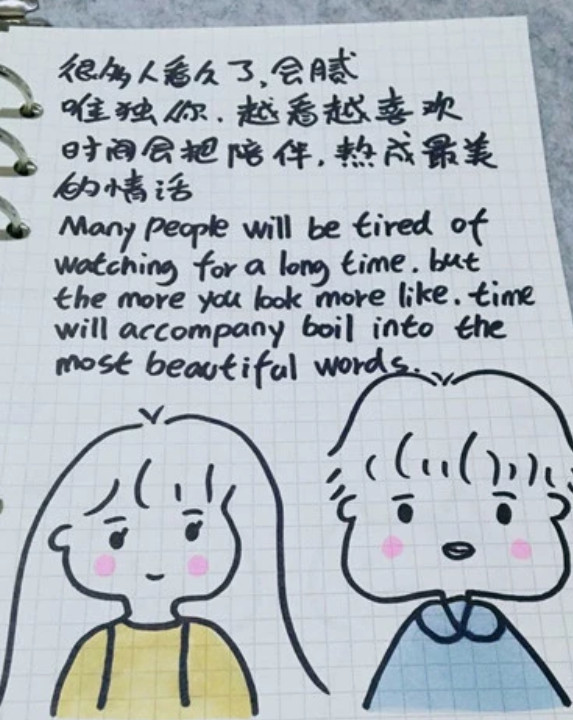 很多人看久了,会腻
唯独你.越看越喜欢
时间会把陪伴.熬成最美
的情话
Many people will be tired of
watching for a long time. but
the more you look more like. time
will accompany boil into the
most beautiful words.